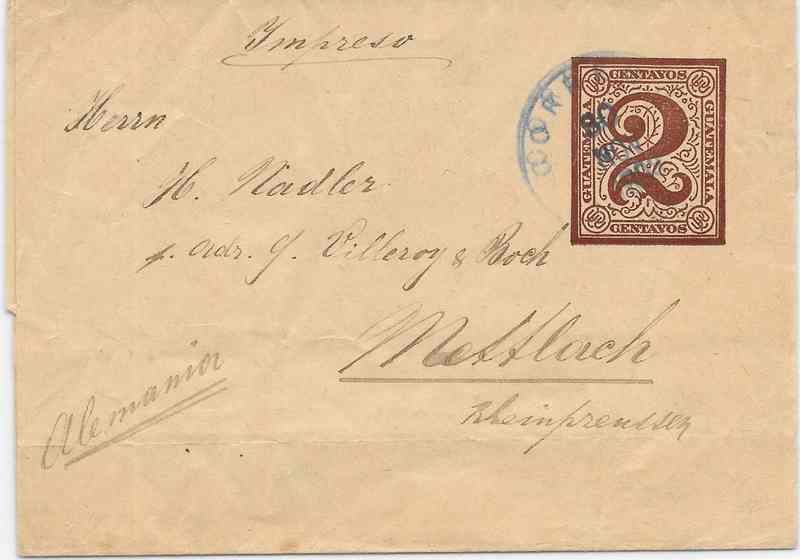 Impreso
CENTAVOS
GUATEMALA
2
GUATEMALA
CENTAVOS
CORREO
30
Herrn
H. Nadler
p. adr. G. Villeroy & Boch
Mettlach
Rheinpreussen
Alemania